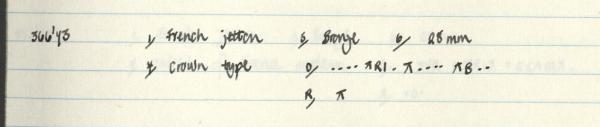 366'43 1, French jetton 5, Bronze 6, 28mm
4, Crown type O, .... πRI. π.... πB..
R, π